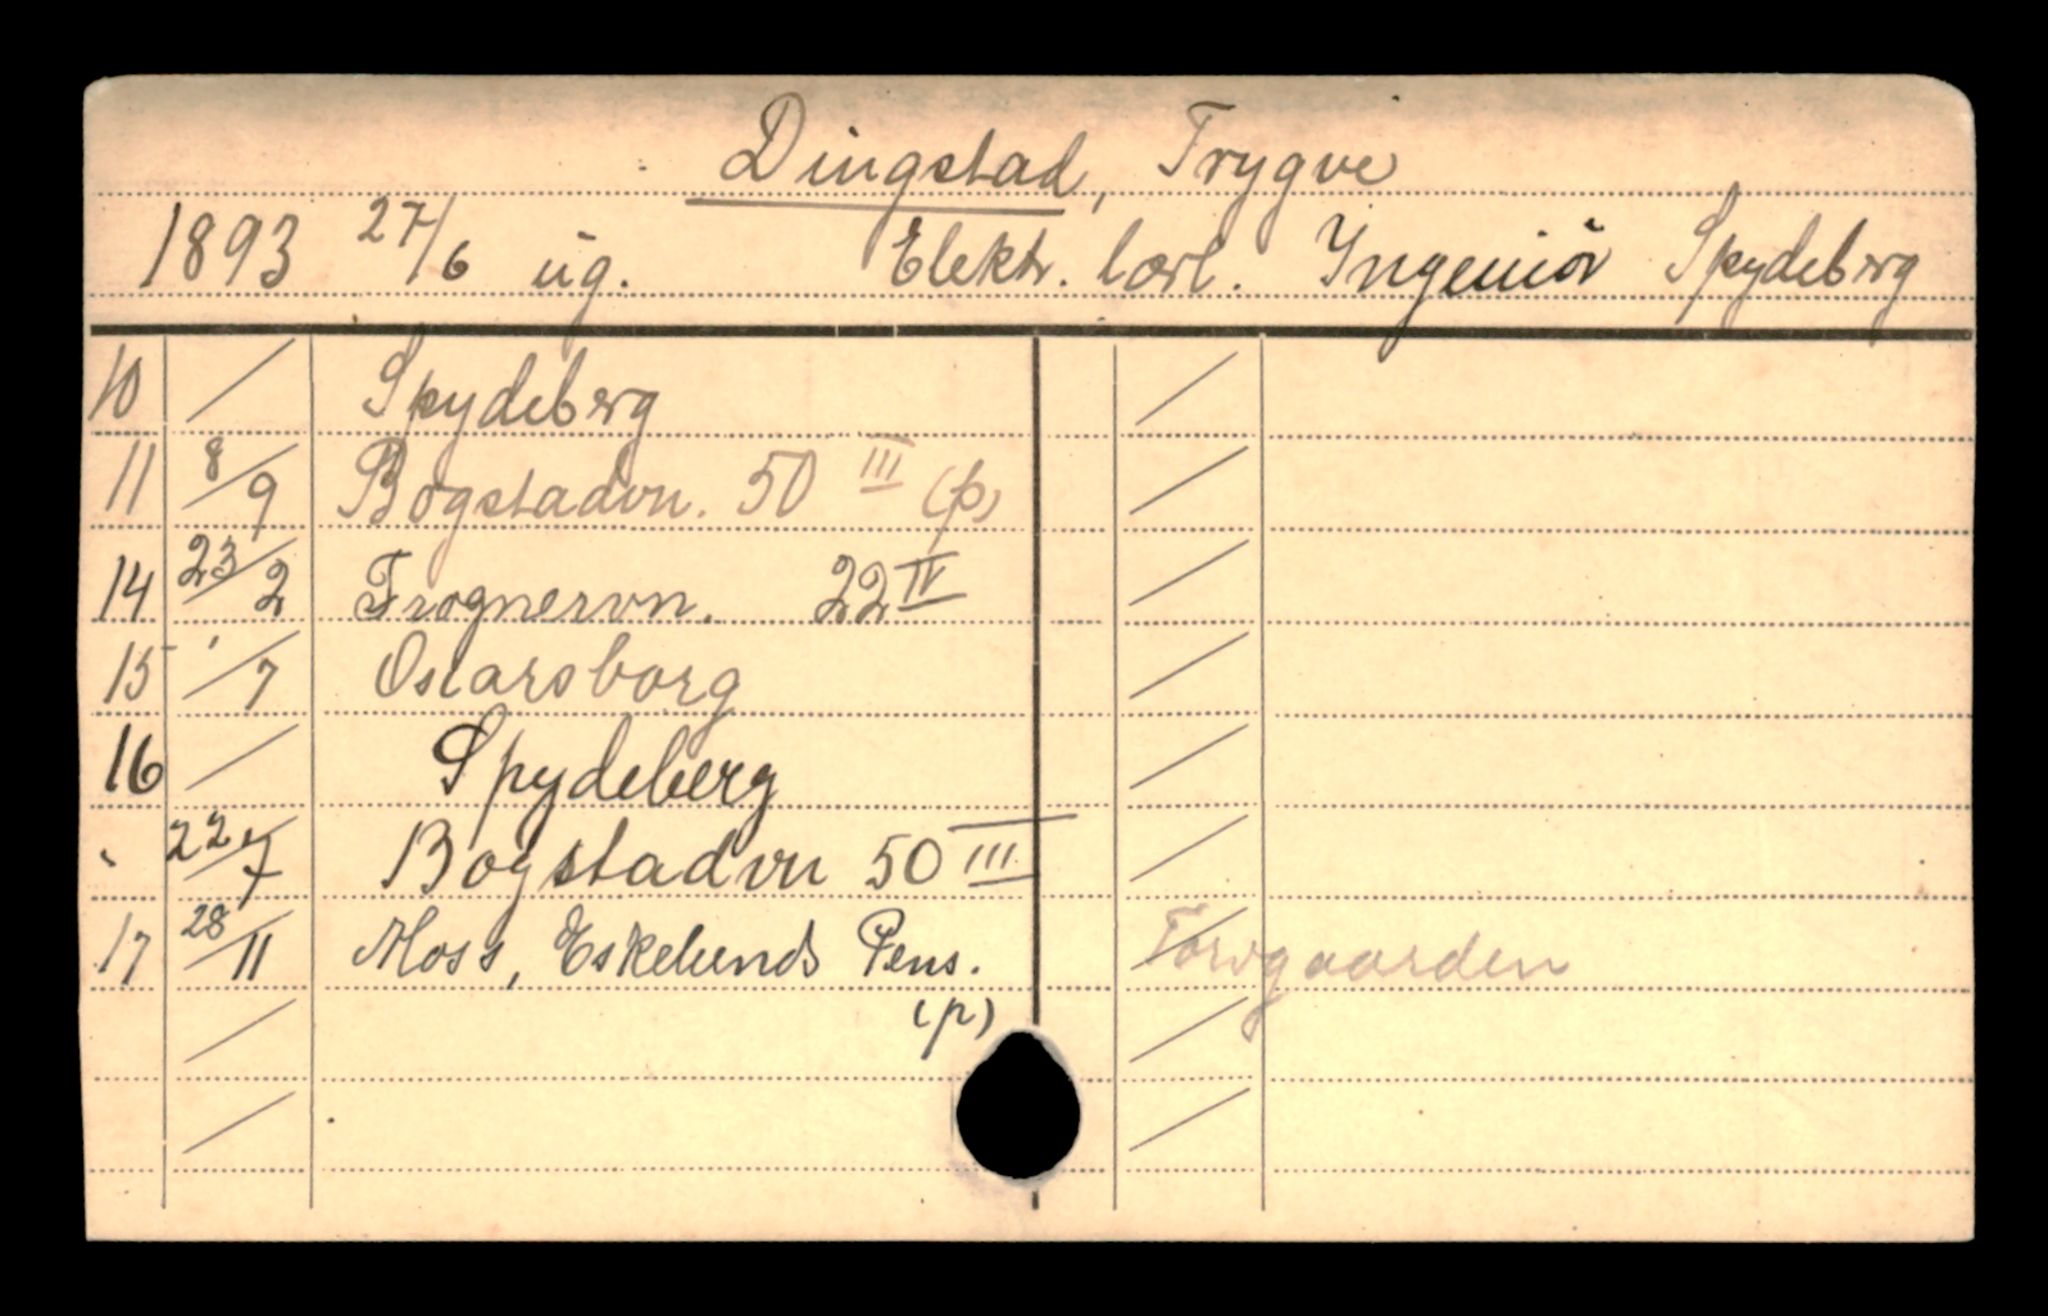 Dingstad, Trygve
1893 27/6 ug. Elektr. lærl. Ingeniör Spydeberg
10 / Spydeberg
11 8/9 Bogstadvn. 50 III (p)
14 23/2 Frognervn. 22 IV
15 /7 Oscarsborg
16 / Spydeberg
" 22/7 Bogstadvn 50 III
17 28/11 Moss, Eskelunds Pens. Torvgaarden
(p)